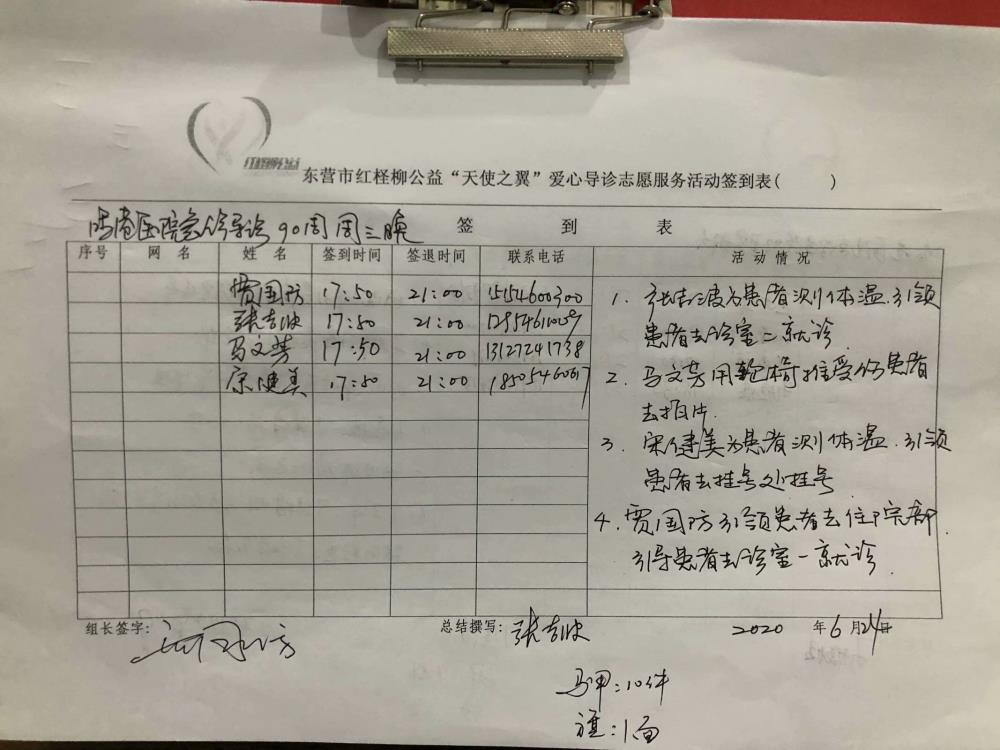 红柽柳公益
东营市红柽柳公益“天使之翼”爱心导诊志愿服务活动签到表(     )
医院急诊导诊 90周 周三晚 签 到 表
序号 网 名 姓 名 签到时间 签退时间 联系电话 活 动 情 况
贾国防 17:50 21:00 15154600300
张吉波 17:50 21:00
马文芳 17:50 21:00 13127241738
宋健美 17:50 21:00 18505460617
1. 张吉波为患者测体温.引领
患者去诊室二就诊
2. 马文芳用轮椅推受伤患者
去拍片.
3. 宋健美为患者测体温.引领
患者去挂号处挂号
4. 贾国防引领患者去住院部
引导患者去诊室一就诊.
组长签字: 贾国防 总结撰写: 张吉波 2020 年 6 月 24 日
马甲:10件
旗:1面